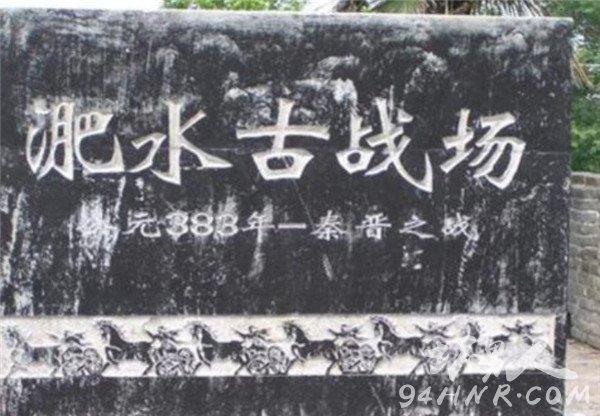 淝水古战场
公元383年—秦晋之战
94HNR.COM